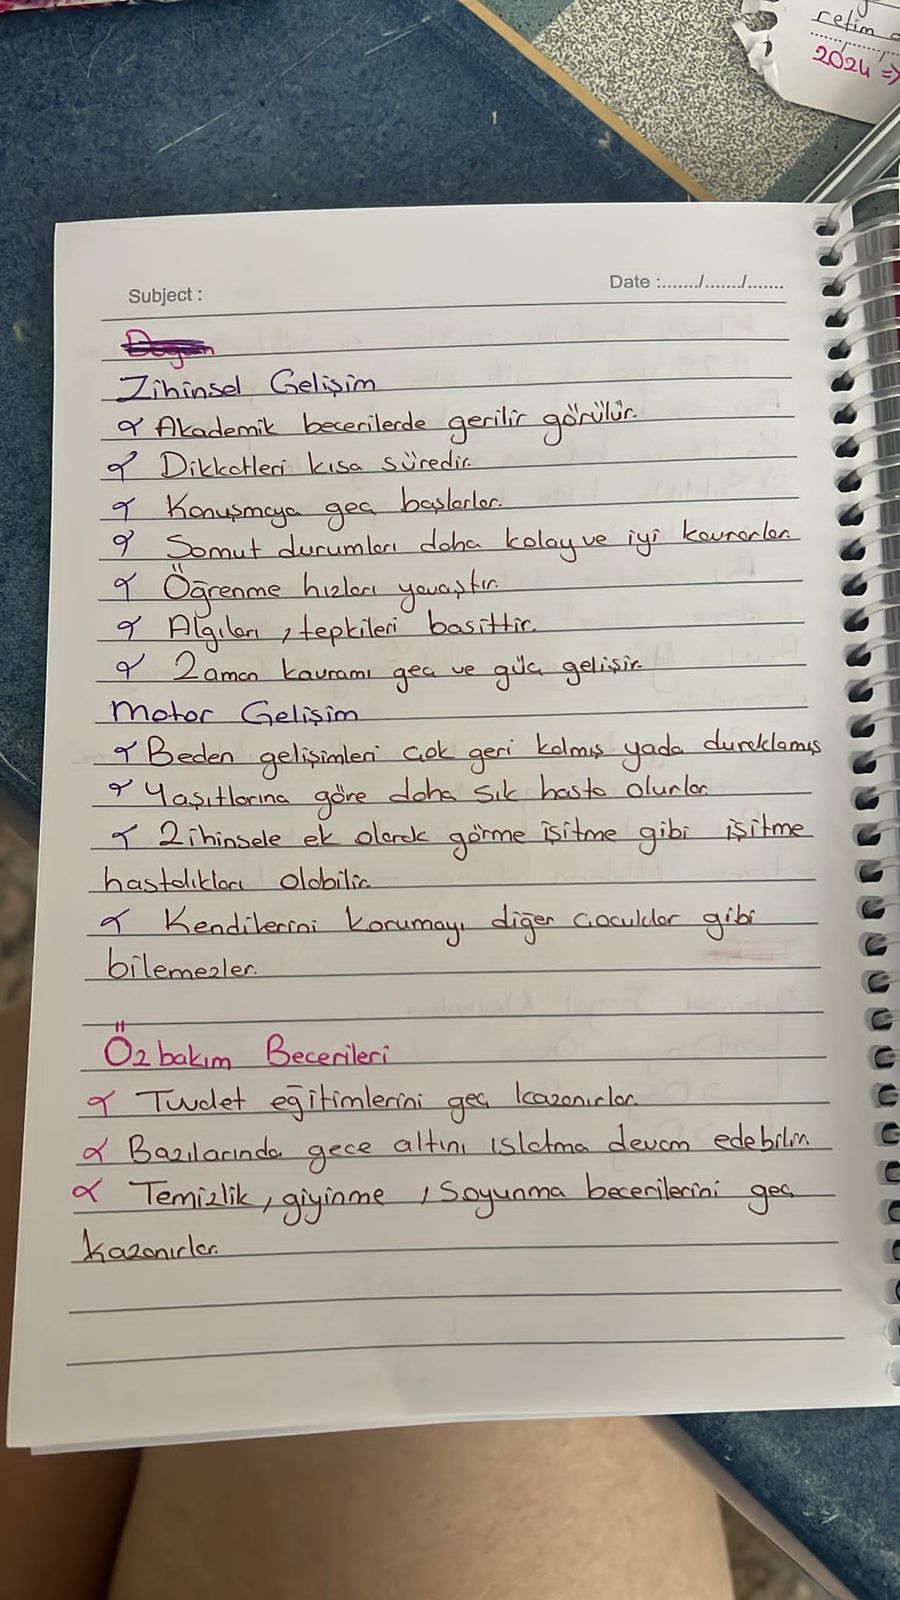 retim
2024 =>
Subject :
Date :......./......./.......
Dogum
Zihinsel Gelişim
Akademik becerilerde gerilir görülür.
Dikkatleri kısa süredir.
Konuşmaya geç başlarlar.
Somut durumları daha kolay ve iyi kavrarlar.
Öğrenme hızları yavaştır.
Algıları, tepkileri basittir.
Zaman kavramı geç ve güç gelişir.
Motor Gelişim
Beden gelişimleri çok geri kalmış yada duraklamış
Yaşıtlarına göre daha sık hasta olurlar.
Zihinsele ek olarak görme işitme gibi işitme
hastalıkları olabilir.
Kendilerini korumayı diğer çocuklar gibi
bilemezler.
Özbakım Becerileri
Tuvalet eğitimlerini geç kazanırlar.
Bazılarında gece altını ıslatma devam edebilir.
Temizlik, giyinme, soyunma becerilerini geç
kazanırlar.